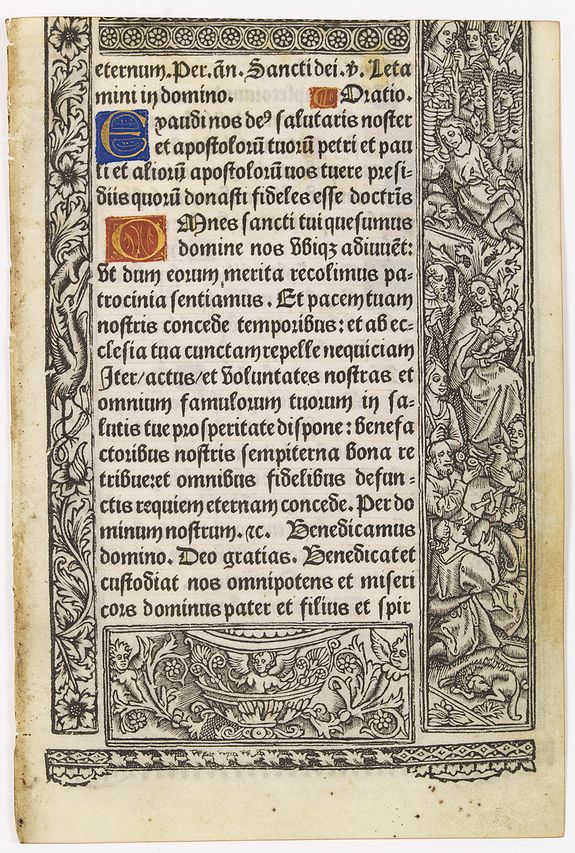 eternum. Per. añ. Sancti dei. ꝟ. Leta
mini in domino. Oratio.
Exaudi nos deꝰ salutaris noster
et apostolorū tuorū petri et pau
li et aliorū apostolorū nos tuere presi-
diis quorū donasti fideles esse doctrīs
OMnes sancti tui quesumus
domine nos vbiqꝫ adiuuēt:
vt dum eorum merita recolimus pa-
trocinia sentiamus. Et pacem tuam
nostris concede temporibus: et ab ec-
clesia tua cunctam repelle nequiciam
Iter/actus/et voluntates nostras et
omnium famulorum tuorum in sa-
lutis tue prosperitate dispone: benefa
ctoribus nostris sempiterna bona re
tribue:et omnibus fidelibus defun-
ctis requiem eternam concede. Per do
minum nostrum. ⁊c. Benedicamus
domino. Deo gratias. Benedicat et
custodiat nos omnipotens et miseri
cors dominus pater et filius et spir